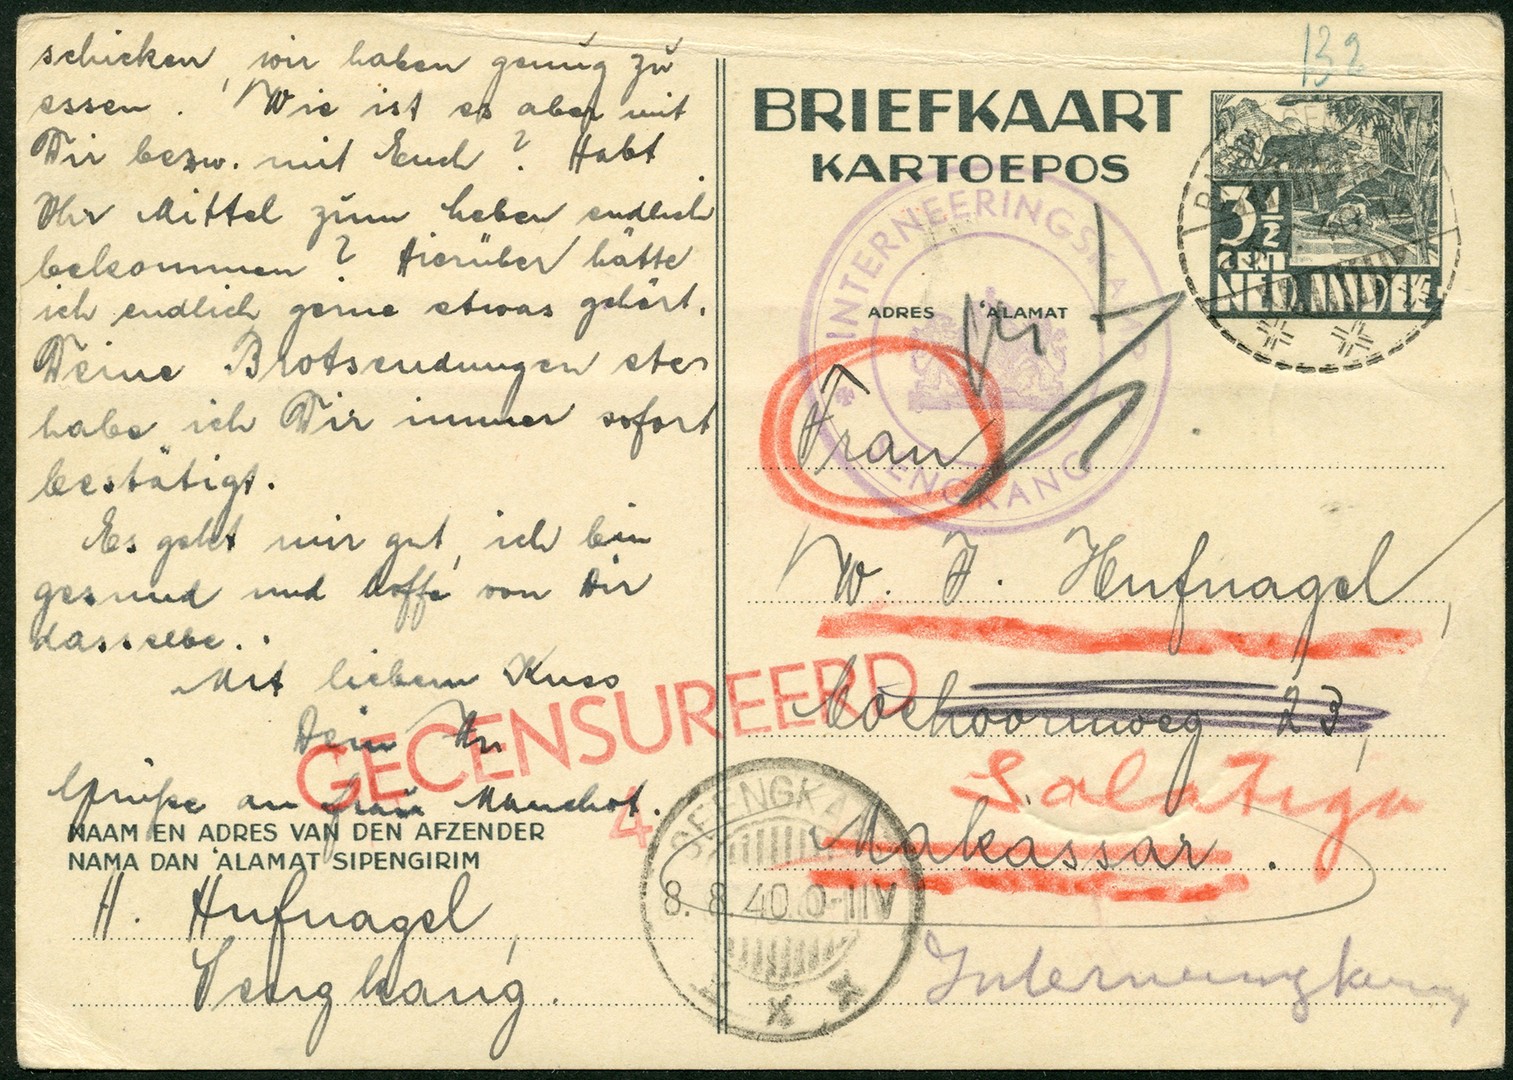 schicken, wir haben genug zu
essen. Wie ist es aber mit
Dir bezw. mit Euch? Habt
Ihr Mittel zum Leben endlich
bekommen? Hierüber hätte
ich endlich gerne etwas gehört.
Deine Brotsendungen etc.
habe ich Dir immer sofort
bestätigt.
Es geht mir gut, ich bin
gesund und hoffe von Dir
dasselbe.
Mit liebem Kuss
Dein
Grüße an Frau
NAAM EN ADRES VAN DEN AFZENDER
NAMA DAN 'ALAMAT SIPENGIRIM
H. Hufnagel,
Sengkang.
GECENSUREERD
4
132
BRIEFKAART
KARTOEPOS
3½
CENT
NED.INDIË
INTERNEERINGSKAMP
SENGKANG
ADRES 'ALAMAT
Frau
W. F. Hufnagel,
23,
Salatiga
Makassar.
SEENGKANG
8.8.40.0-IIV
Interneeringskamp